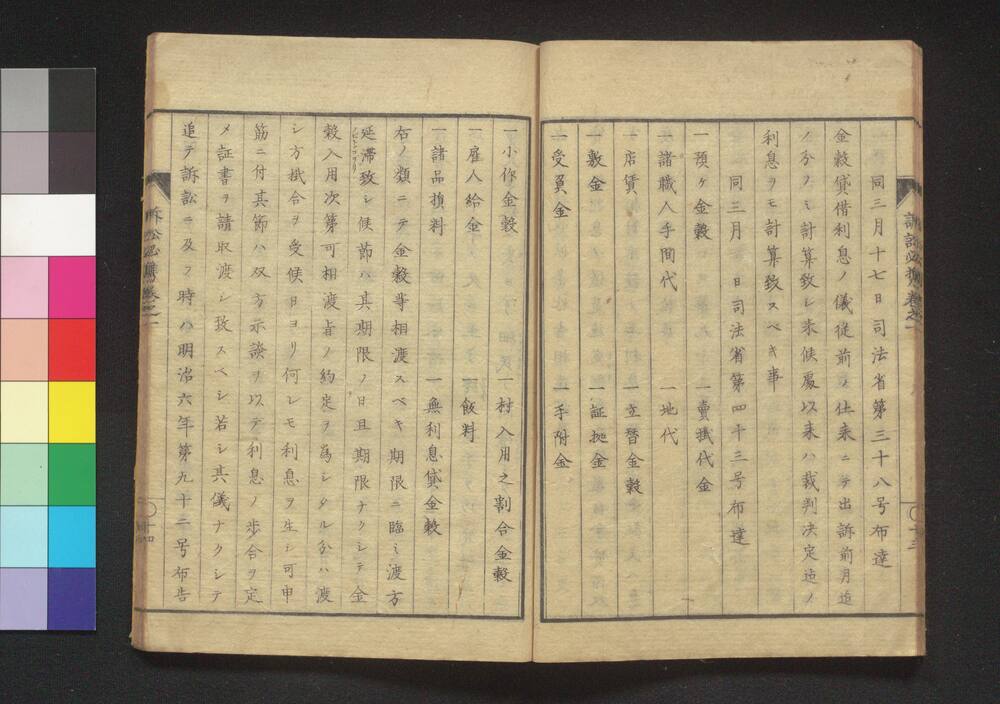 訴訟必携卷之一
十三
同三月十七日司法省第三十八号布達
金穀貸借利息ノ儀従前ノ仕来ニテ出訴前月迄
ノ分ノミ計算致シ来候處以来ハ裁判決定迄ノ
利息ヲモ計算致スベキ事
同三月　日司法省第四十三号布達
一預ケ金穀　一賣掛代金
一諸職人手間代　一地代
一店賃　一立替金穀
一敷金　一証拠金
一受負金　一手附金
一小作金穀　一村入用之割合金穀
一雇人給金　一飯料
一諸品損料　一無利息貸金穀
右ノ類ニテ金穀等相渡スベキ期限ニ臨ミ渡方
延滞致シ候節ハ其期限ノ日且期限ナクシテ金
穀入用次第可相渡旨ノ約定ヲ爲シタル分ハ渡
シ方掛合ヲ受候日ヨリ何レモ利息ヲ生シ可申
筋ニ付其節ハ双方示談ヲ以テ利息ノ歩合ヲ定
メ証書ヲ請取渡シ致スベシ若シ其儀ナクシテ
追テ訴訟ニ及フ時ハ明治六年第九十二号布告
訴訟必携卷之一
十四